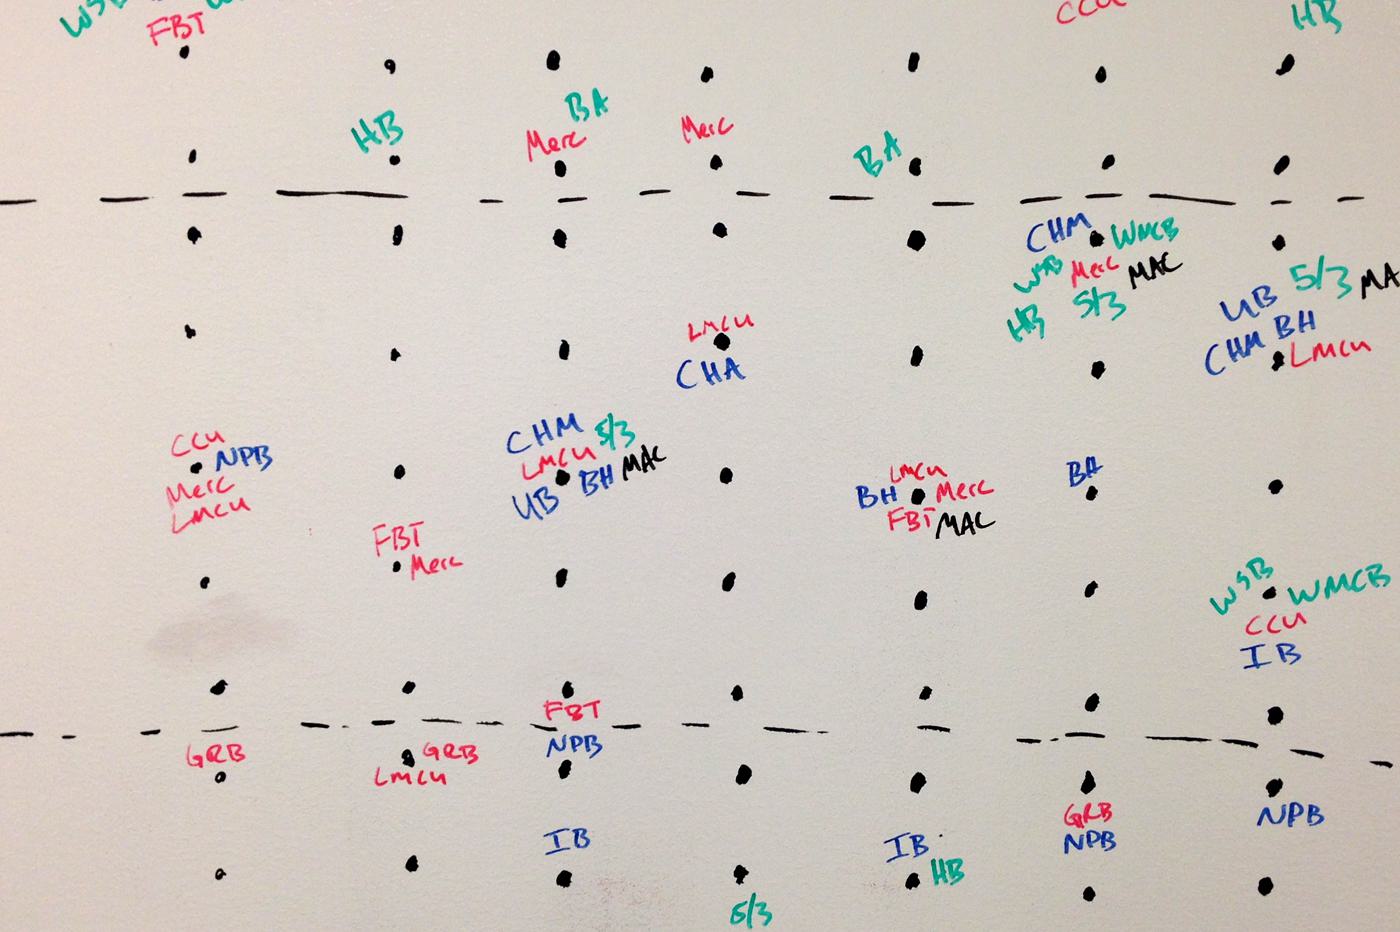 WSB
FBT
CCU
HB
HB
BA
Merc
Merc
BA
CHM WMCB
WSB Merc MAC
HB 5/3
UB 5/3 MA
CHM BH
LMCU
LMCU
CHA
CCU
NPB
Merc
LMCU
FBT
Merc
CHM 5/3
LMCU MAC
UB BH
LMCU
BH Merc
FBT MAC
BH
WSB WMCB
CCU
IB
GRB
GRB
LMCU
FBT
NPB
IB
5/3
IB
HB
GRB
NPB
NPB